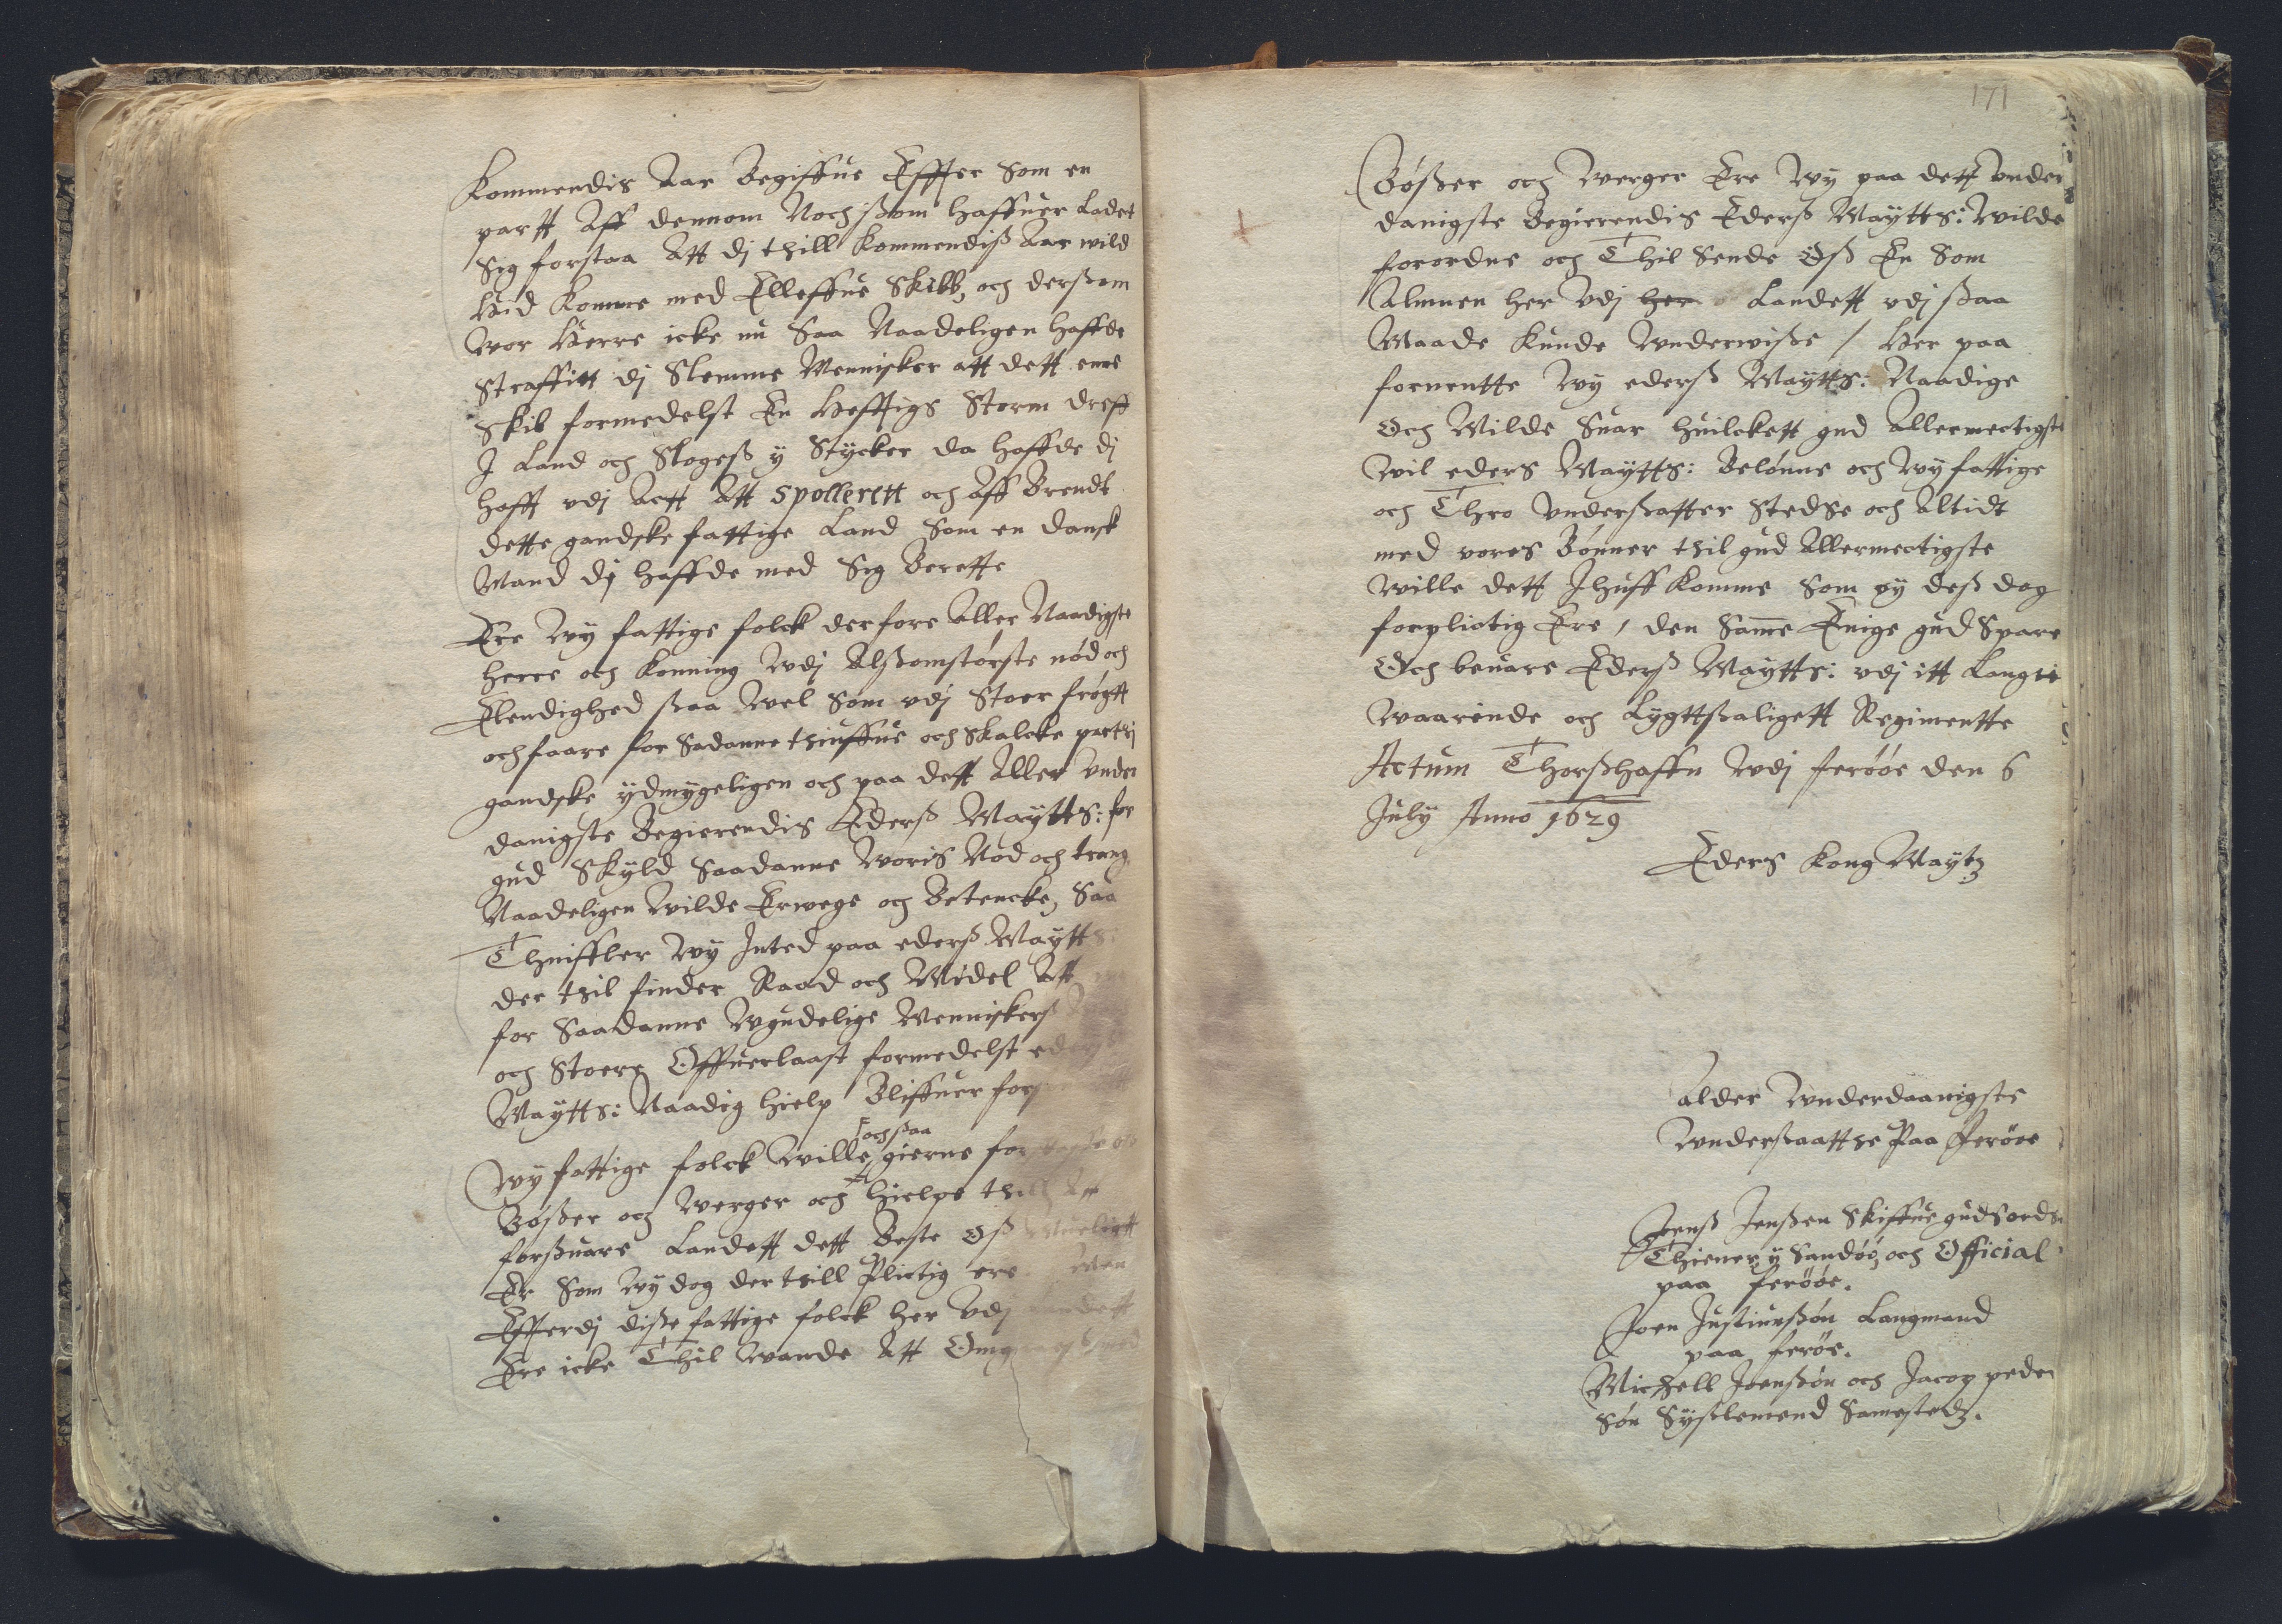 Kommendis Aar Begiffue Effter Som en
partt Aff dennom Noch ßom haffuer Ladet
Sig forstaa Att dj thill Kommendiß Aar wild
Hid Komme med Elleffue Skibb, och derßom
Wor Herre icke nu Saa Naadeligen haffde
Straffitt dj Slemme Mennisker att dett ene
Skib formedelst En Hefftigs Storm dreff
J Land och Slogeß y Stycker da haffde dj
hafft vdj Actt Att Spollerett och Aff Brendt
dette gandske fattige Land Som en dansk
Mand dj haffde med Sig Berette
Ere Wy fattige folck derfore Aller Naadigste
Herre och Konning Wdj Alßomstörste nöd och
Elendighed ßaa Wel Som vdj Stoer frögtt
och faare for Sadanne thiuffue och Skalcke
gandske ydmygeligen och paa dett Aller Under
danigste Begierendis Ederß Maytts: for
gud Skyld Saadanne Woris Nöd och trang
Naadeligen Wilde Erwege och Betencke, Saa
Thuiffler Wy Inted paa ederß Maytts:
der thil finder Raad och Midel Att
for Saadanne Wgudelige Menniskerß
och Stoere Offuerlaast formedelst ederß
Maytts: Naadig hielp Bliffuer for
Wy fattige folck Wille ochßaa gierne for
Bößer och Werger och hielpe thill Att
forßuare Landett dett Beste Oß Mueligtt
Er Som Wy dog der thill Plictig ere Men
Efferdj diße fattige folck her Vdj Landett
Ere icke Thil Wande Att Omg
171
Bößer och Werger Ere Wy paa dett Under
danigste Begierendis Ederß Maytts: Wilde
forordne och Thil Sende Oß En Som
Almuen her Vdj her Landett vdj ßaa
Maade Kunde Wnderwiße / Her paa
foruentte Wy ederß Maytts: Naadige
Och Milde Suar huilckett gud Allermectigste
Wil eders Maytts: Belönne och Wy fattige
och Thro Underßatter Stedse och Altidt
med vores Bönner thil gud Allermectigste
Wille dett Jhuff Komme Som Wy deß dog
forplictig Ere, den Same Enige gud Spare
Och beuare Ederß Maytts: vdj itt Langtt
Waarende och Lygttßaligett Regimentte
Actum Thorßhaffn Wdj feröoe den 6
July Anno 1629
Eders Kong Maytz
alder Wnderdaanigste
Wnderßaatthe Paa Feröoe
Jenß Jenßen Skiffue gudsords
Thiener y Sandöö, och Official
paa feröoe.
Joen Justinußön Laugmand
paa feröe.
Michell Joenßön och Jacop peder
Sön Syßlemend Samestedz.